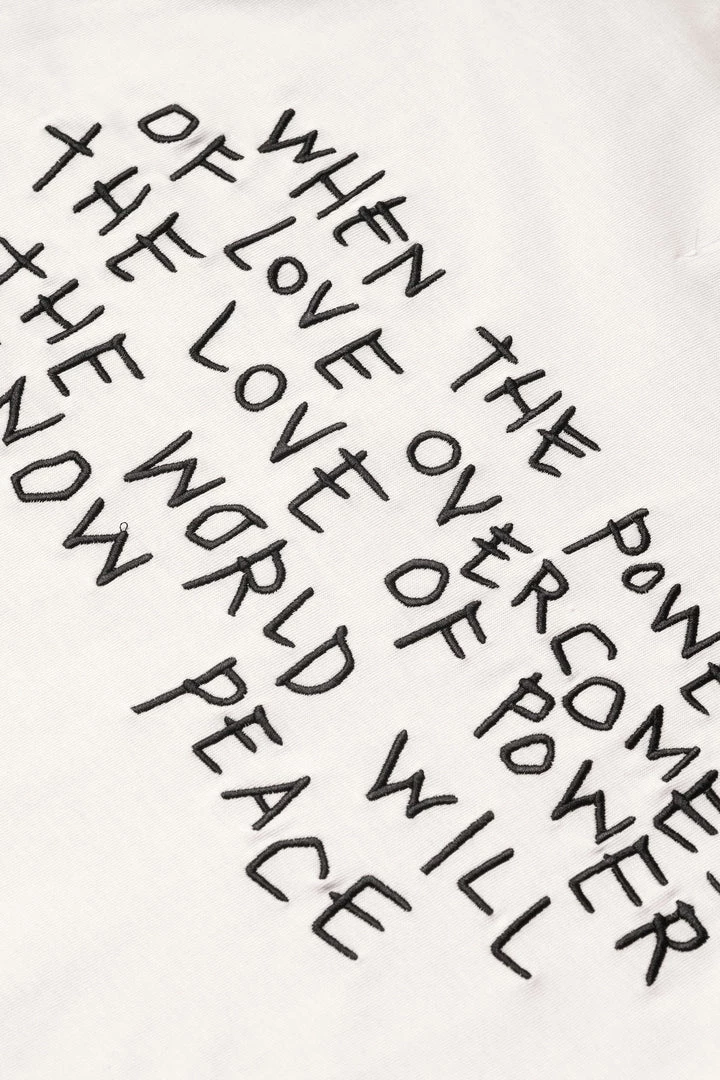 WHEN THE POWE
OF LOVE OVERCOME
THE LOVE OF POWER
THE WORLD WILL
NOW PEACE